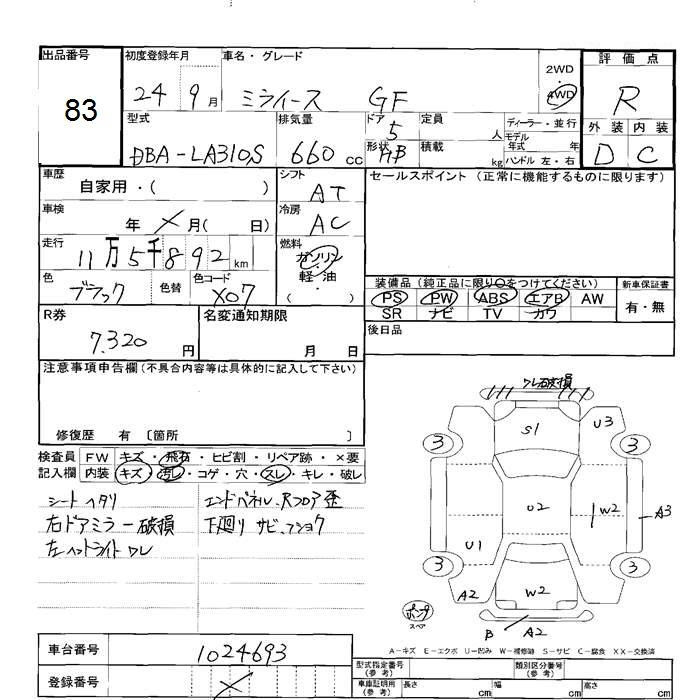 出品番号 初度登録年月 車名・グレード 評価点
83
24 9月 ミライース GF 2WD 4WD R
型式 排気量 ドア 定員 ディーラー・並行 外装 内装
DBA-LA310S 660cc 5 人 モデル年式 年
形状 HB 積載 kg ハンドル 左・右 D C
車歴 自家用・( ) シフト AT セールスポイント (正常に機能するものに限ります)
車検 年 X 月( 日) 冷房 AC
走行 11万5千892km 燃料 ガソリン・軽・油 ( )
色 ブラック 色替 色コード X07
装備品 (純正品に限り○をつけてください) 新車保証書
PS PW ABS エアB AW 有・無
SR ナビ TV カワ
R券 7,320円 名変通知期限 月 日 後日品
注意事項申告欄 (不具合内容等は具体的に記入して下さい)
修復歴 有 〔箇所 〕
検査員 FW キズ・飛石・ヒビ割・リペア跡・×要
記入欄 内装 キズ・汚レ・コゲ・穴・スレ・キレ・破レ
シート ヘタリ エンドパネル、Rフロア歪
右ドアミラー破損 下廻り サビ、フショク
左ヘットライト ワレ
ワレ 破損
S1 U3
3 3
U2 W2 A3
U1
3 3
A2 W2
ポンプ
スペア
B A2
A-キズ E-エクボ U-凹み W-補修跡 S-サビ C-腐食 XX-交換済
車台番号 1024693 型式指定番号(参考) 類別区分番号(参考)
登録番号 X 車庫証明用(参考) 長さ cm 幅 cm 高さ cm